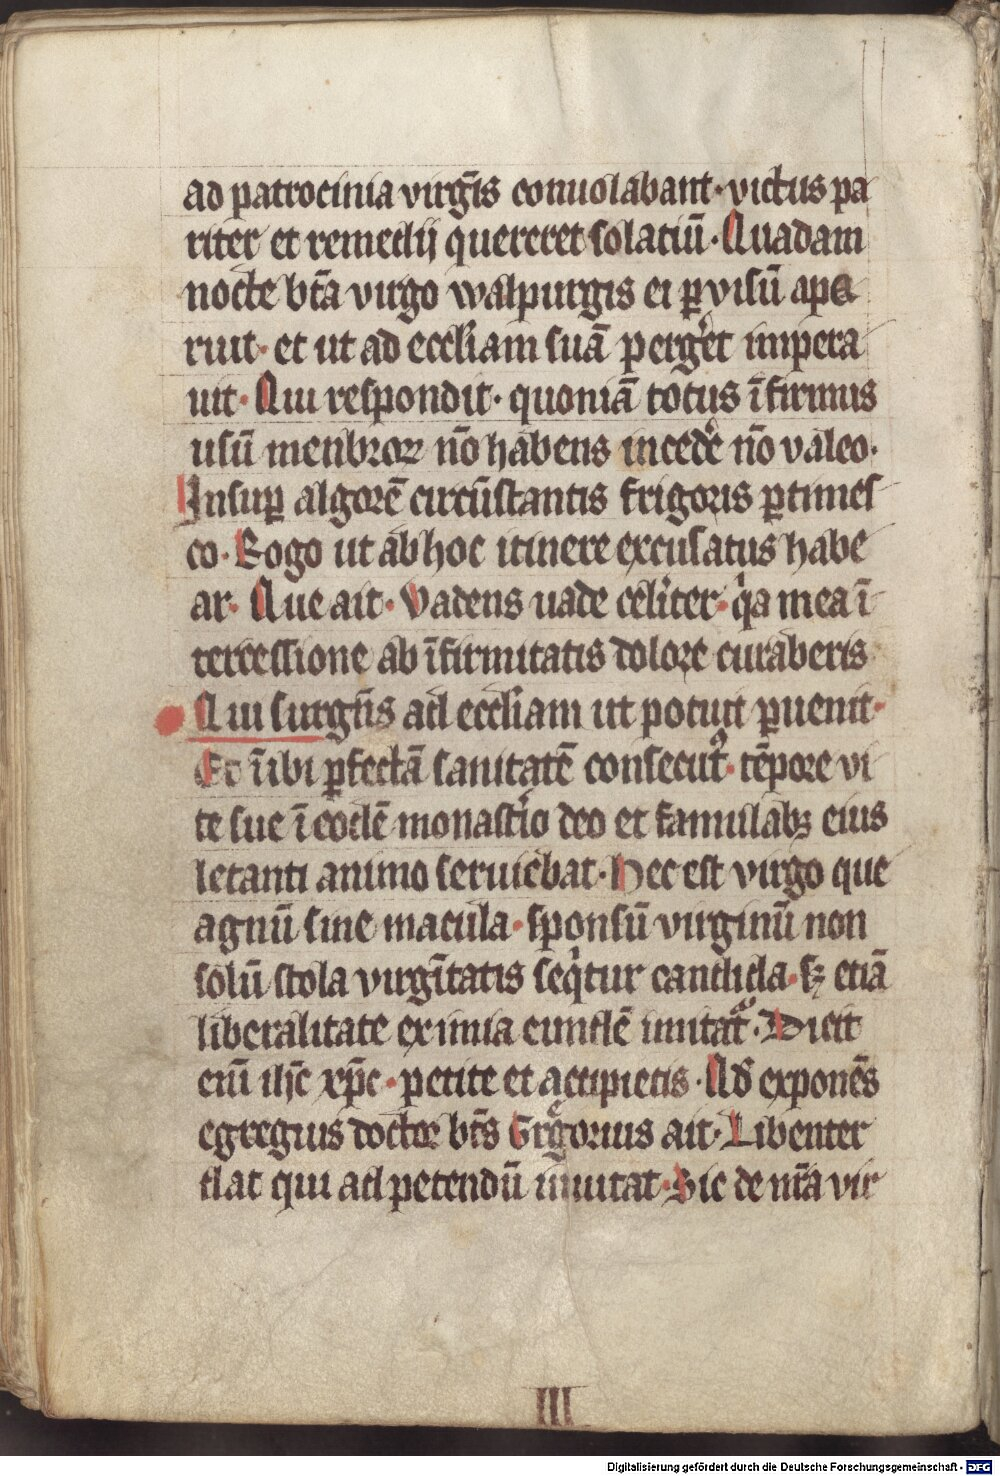 ad patrocinia virgīs conuolabant· victus pa
riter et remedij quereret solatiū· Quadam
nocte btā virgo walpurgis ei ꝑ visū apꝑ
ruit· et ut ad eccliam suā pergēt impera
uit· Qui respondit· quoniā totus īfirmus
usū menbroꝝ nō habens incedē nō valeo·
Insuꝑ algorē circūstantis frigoris ꝑtimes
co· Rogo ut ab hoc itinere excusatus habe
ar· Que ait· Vadens uade celiter· qͥa mea ī
tercessione ab īfirmitatis dolore curaberis
Qui surgēs ad eccliam ut potuit ꝑuenit·
Et ībi ꝑfectā sanitatē consecut᷒· tēpore vi
te sue ī eodē monastͥo deo et famulabꝫ eius
letanti animo seruiebat· Hec est virgo que
agnū sine macula· sponsū virginū non
solū stola virgītatis seqͥtur candida· sꝫ etiā
liberalitate eximia eundē imitat᷒· Dicit
eīu ihc̄ xpc̄· petite et accipietis· Qd̄ exponēs
egregius doctor bt̄s Grͤgorius ait· Libenter
dat qui ad petendū inuitat· Sic de nr̄a vir
III
Digitalisierung gefördert durch die Deutsche Forschungsgemeinschaft - DFG